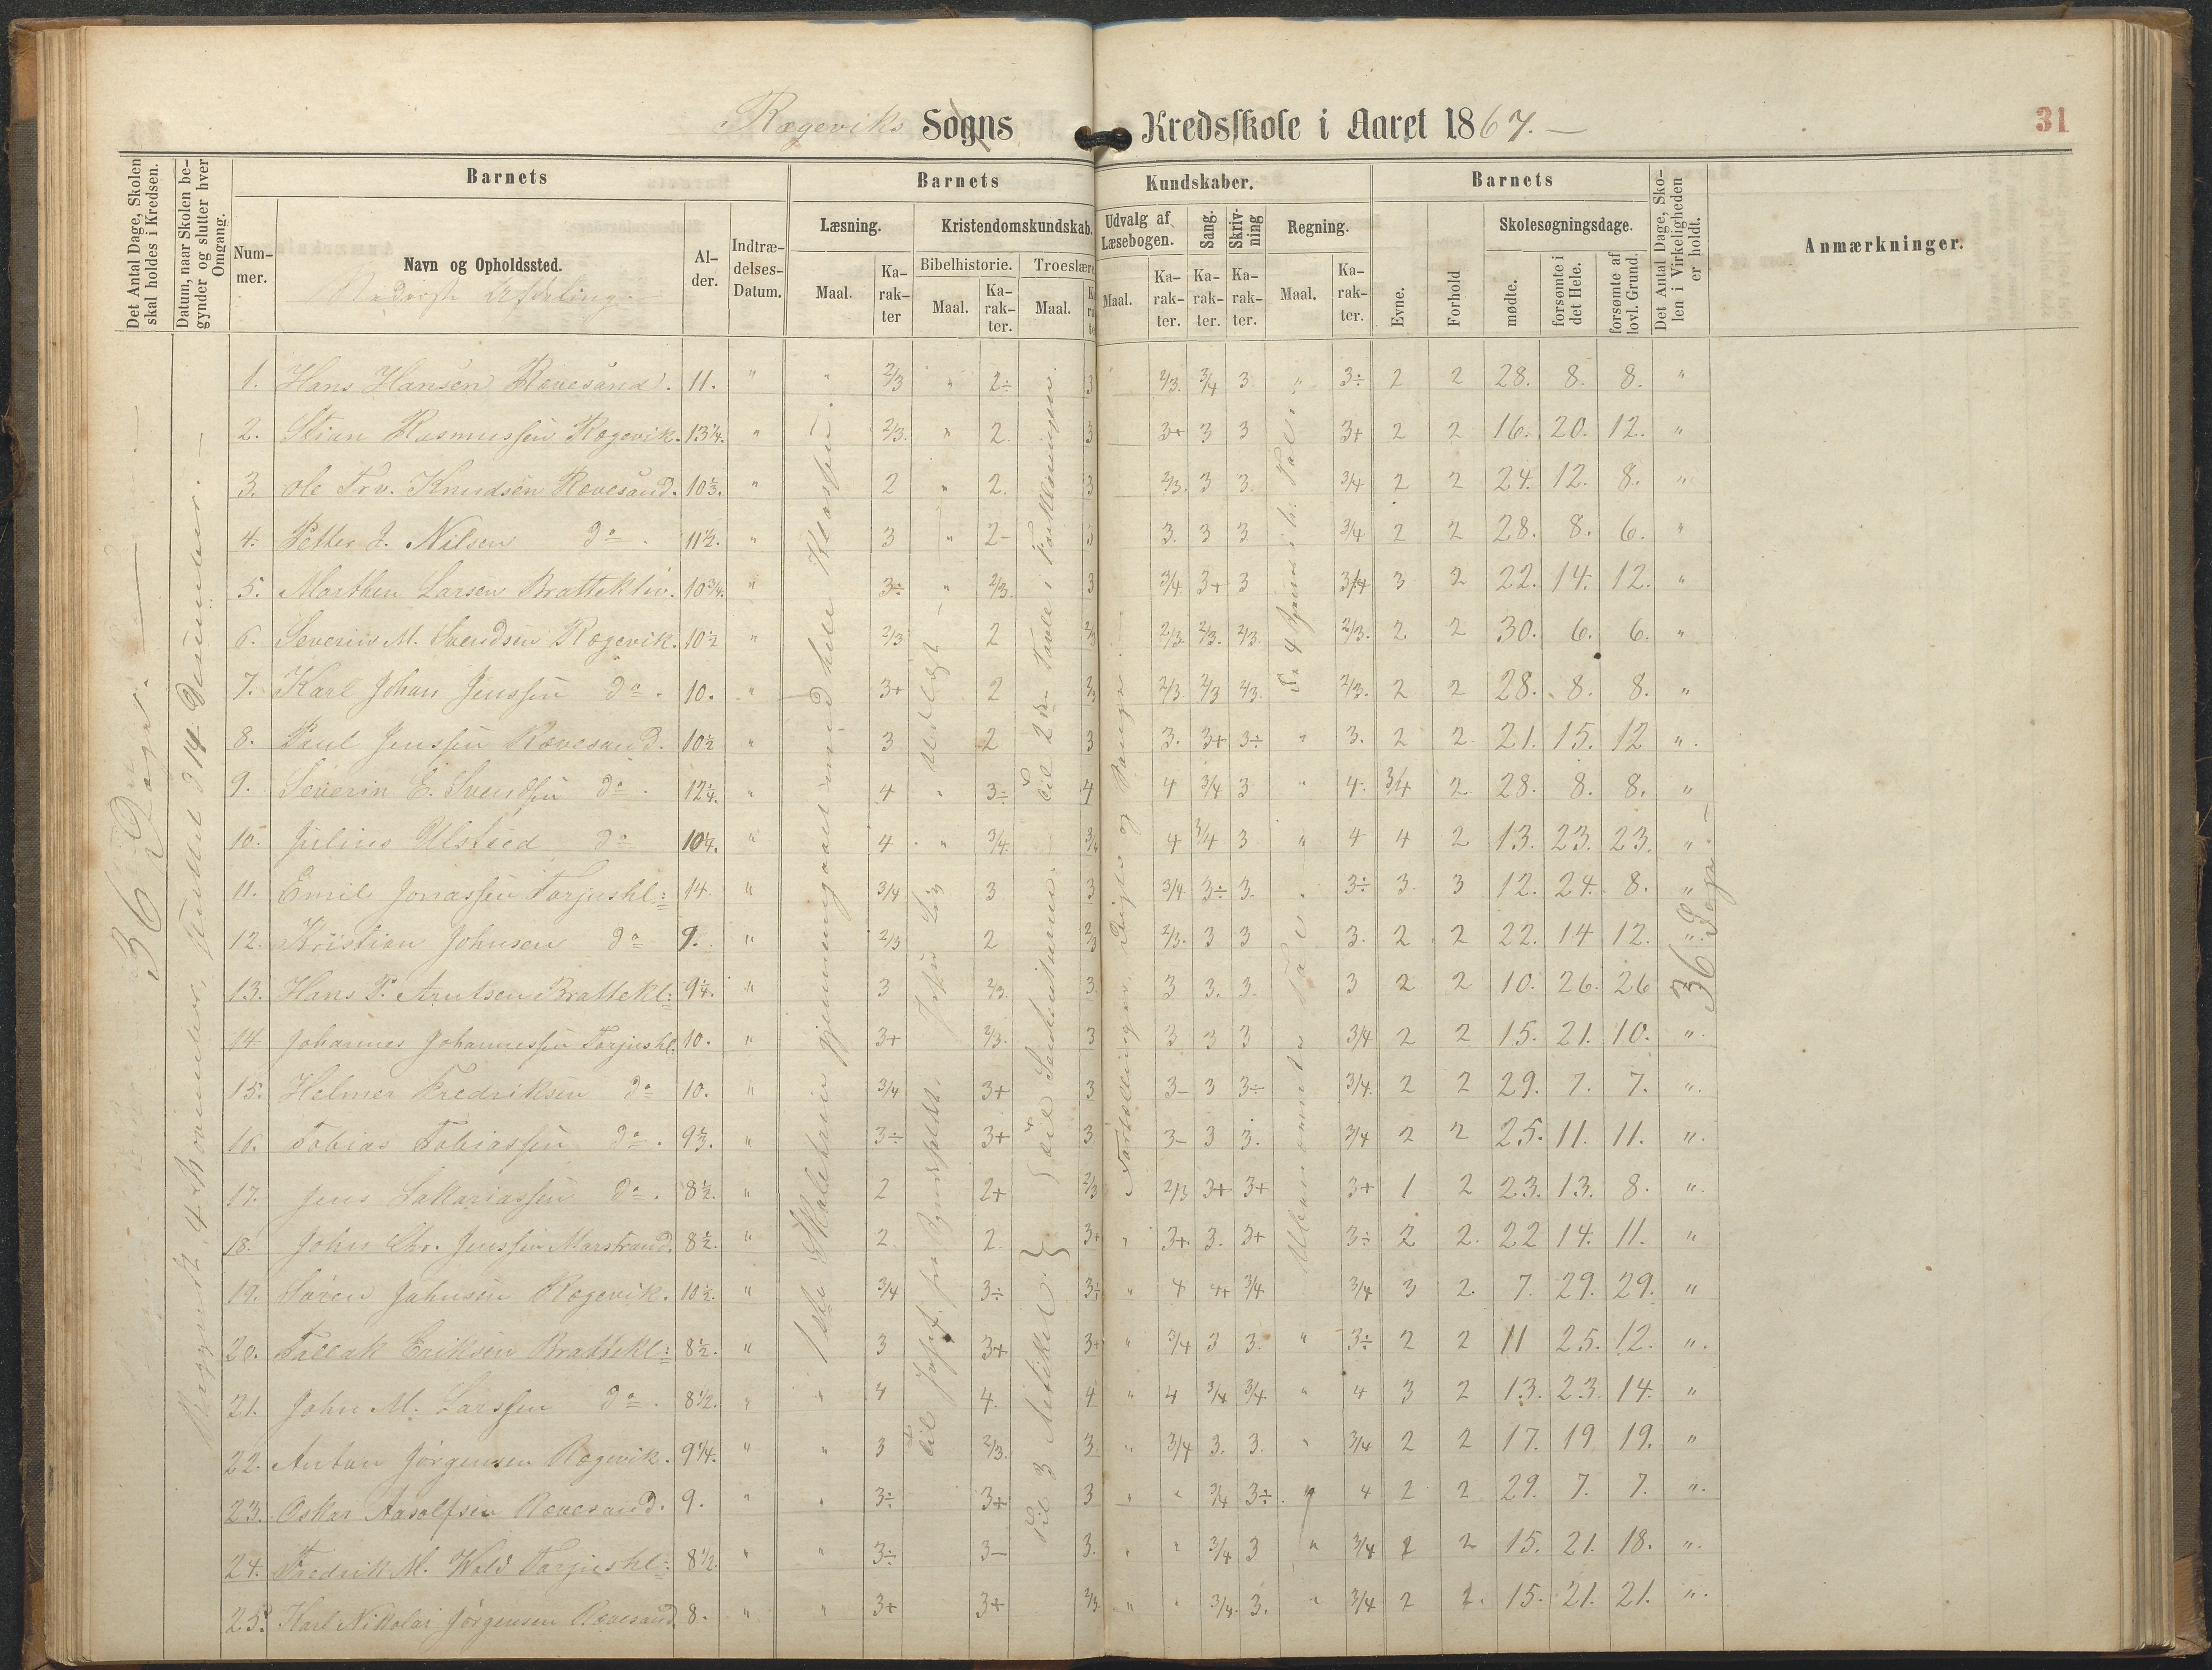 Rægeviks Sogns Kredsskole i Aaret 1867. —
31
Det Antal Dage, Skolen skal holdes i Kredsen.
Datum, naar Skolen begynder og slutter hver Omgang.
Barnets
Barnets
Kundskaber.
Barnets
Det Antal Dage, Skolen i Virkeligheden er holdt.
Anmærkninger.
Nummer.
Navn og Opholdssted.
Alder.
Indtrædelses-Datum.
Læsning.
Kristendomskundskab.
Udvalg af Læsebogen.
Sang.
Skrivning
Regning.
Evne.
Forhold
Skolesøgningsdage.
Maal.
Karakter
Bibelhistorie.
Troeslære
Maal.
Karakter.
Maal.
Maal.
Karakter.
Karakter.
Karakter.
Maal.
Karakter.
mødte.
forsømte i det Hele.
forsømte af lovl. Grund.
Nederste Afdeling
36 Dage. —
Begyndt 4 November, sluttet d 14 December. —
36 Dage. —
1. Hans Hansen Rævesand. 11. " " 2/3 " 2÷ 3 2/3. 3/4 3 " 3÷ 2 2 28. 8. 8. "
2. Stian Rasmussen Rægevik. 13 1/4. " 2/3. " 2. 3 3+ 3 3 3+ 2 2 16. 20. 12. "
3. Ole Trv. Knudsen Rævesand. 10 1/3. " 2 " 2. 3 2/3. 3 3. 3/4 2 2 24. 12. 8. "
4. Petter J. Nilsen do. 11 1/2. " 3 " 2- 3 3. 3 3 3/4 2 2 28. 8. 6. "
5. Marthin Larsen Bratteklev. 10 3/4. " 3÷ " 2/3. 3 3/4 3+ 3 3/4 3 2 22. 14. 12. "
6. Severin M. Svendsen Rægevik. 10 1/2 " 2/3 2 2/3 2/3. 2/3. 2/3. 2/3. 2 2 30. 6. 6. "
7. Karl Johan Jenssen do. 10. " 3+ 2 2/3 2/3 2/3 2/3. 2/3. 2 2 28. 8. 8. "
8. Paul Jenssen Rævesand. 10 1/2 " 3 2 3 3. 3+ 3÷ " 3. 2 2. 21. 15. 12 ".
9. Severin E. Svendsen do. 12 1/4. " 4 " 3÷ 4 4 3/4 3 " 4. 3/4 2 28. 8. 8. "
10. Julius Ulsted do 10 1/4. " 4 " 3/4. 3/4 4 3/4 3 " 4 4 2 13. 23. 23. "
11. Emil Jonassen Torjushl: 14. " 3/4 3 3 3/4. 3÷ 3. 3÷ 3. 3 12. 24. 8. "
12. Kristian Johnsen do 9. " 2/3 2 2/3 2/3. 3 3 3. 2 2 22. 14 12. "
13. Hans P. Arntsen Brattekl: 9 1/4. " 3 2/3. 3. 3 3. 3. 3 2 2 10. 26. 26 "
14 Johannes Johannessen Torjushl. 10. " 3+ 2/3. 3 3 3 3 3/4 2 2 15. 21. 10. ".
15. Helmer Fredriksen do 10. " 3/4 3+ 3 3- 3 3÷ 3/4. 2 2 29. 7. 7. ".
16. Tobias Tobiassen do. 9 1/3. " 3÷ 3+ 3 3- 3 3. 3/4 2 2 25. 11. 11. ".
17. Jens Sakariassen do. 8 1/2. " 2 2+ 2/3 2/3 3+ 3+ 3+ 1 2 23. 13. 8. ".
18. John Chr. Jenssen Marstrand. 8 1/2. " 2. 2. 3+ " 3+ 3. 3+ 3÷ 2 2. 22 14. 11. "
19. Søren Johnsen Rægevik. 10 1/2. " 3/4 3÷ 3÷ " 4 4+ 3/4 3/4 3 2. 7. 29. 29. "
20. Tallak Eriksen Brattekl: 8 1/2. " 3 3+ 3+ " 3/4 3 3. " 3÷ 2 2 11 25. 12. ".
21. John M. Larssen do. 8 1/2. " " 4 4. 4 " 4 3/4 3/4 " 4 3 2 13. 23. 14. "
22. Anton Jørgensen Rægevik. 9 1/4. " " 3 2/3. 3. " 3/4 3. 3. " 3/4 2 2 17. 19 19. "
23. Oskar Aasolfsen Rævesand. 9. " " 3÷ 3+ 3 " " 3/4 3÷. " 4 2 2 29. 7. 7. ".
24. Fredrik M. Wold Torjushl: 8 1/2. " " 3÷ 3- 3. " " 3/4 3 " 3/4 2 2 15. 21. 18. ".
25. Karl Nikolai Jørgensen Rævesand. 8. " " 3+ 3+ 2/3. " " 3/4. 3. " 3/4 2 2. 15. 21. 21. ".